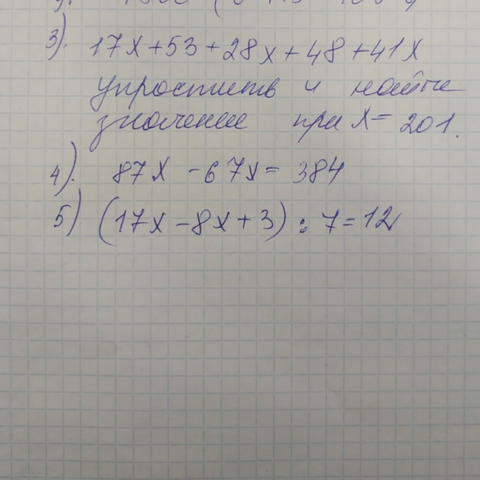 3). 17x+53+28x+48+41x
упростить и найти
значение при x=201.
4). 87x-67x=384
5) (17x-8x+3):7=12